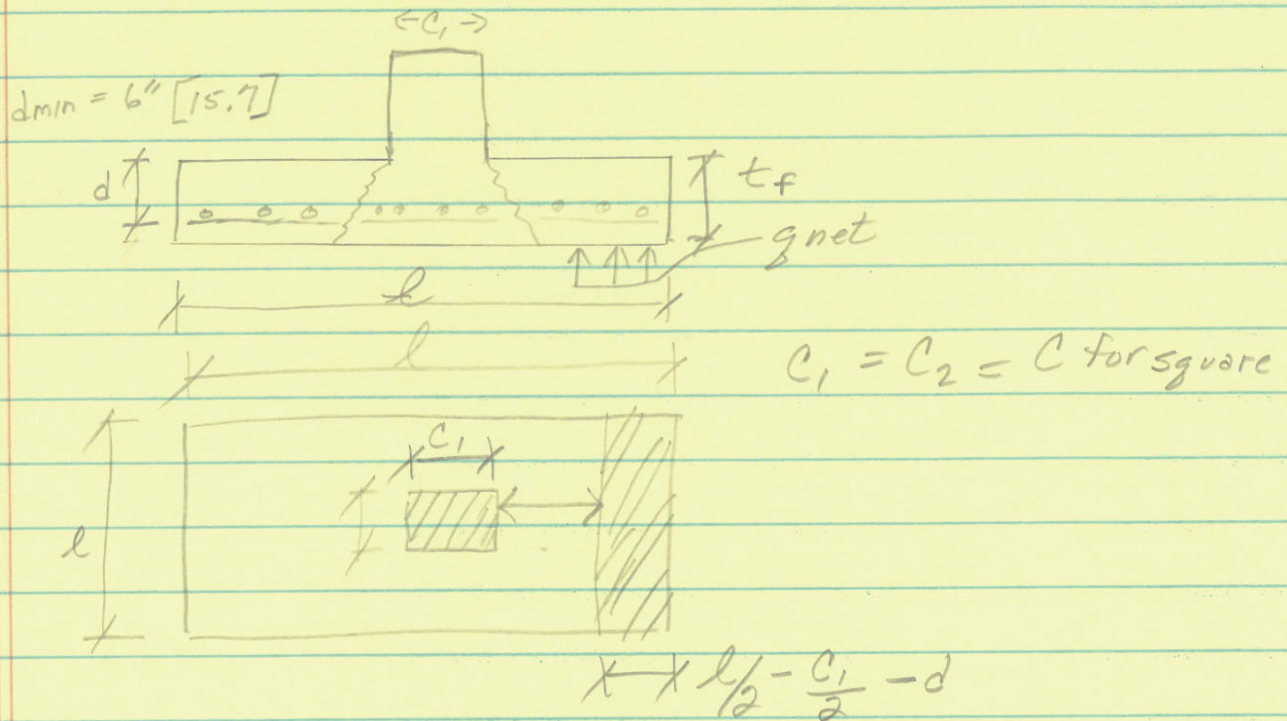 ←C₁→
dmin = 6" [15.7]
d
tf
q net
l
l
C₁ = C₂ = C for square
C₁
l
l/2 - C₁/2 - d